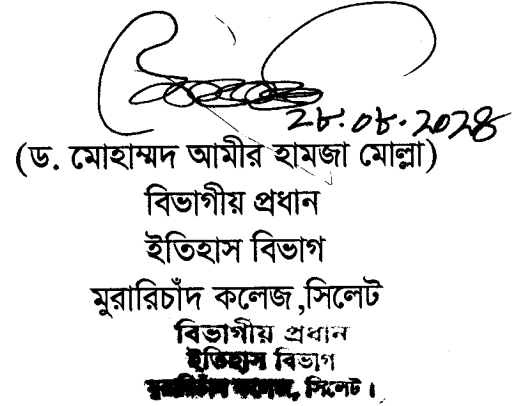 ২৮.০৮.২০২৪
(ড. মোহাম্মদ আমীর হামজা মোল্লা)
বিভাগীয় প্রধান
ইতিহাস বিভাগ
মুরারিচাঁদ কলেজ,সিলেট
বিভাগীয় প্রধান
ইতিহাস বিভাগ
মুরারিচাঁদ কলেজ, সিলেট।